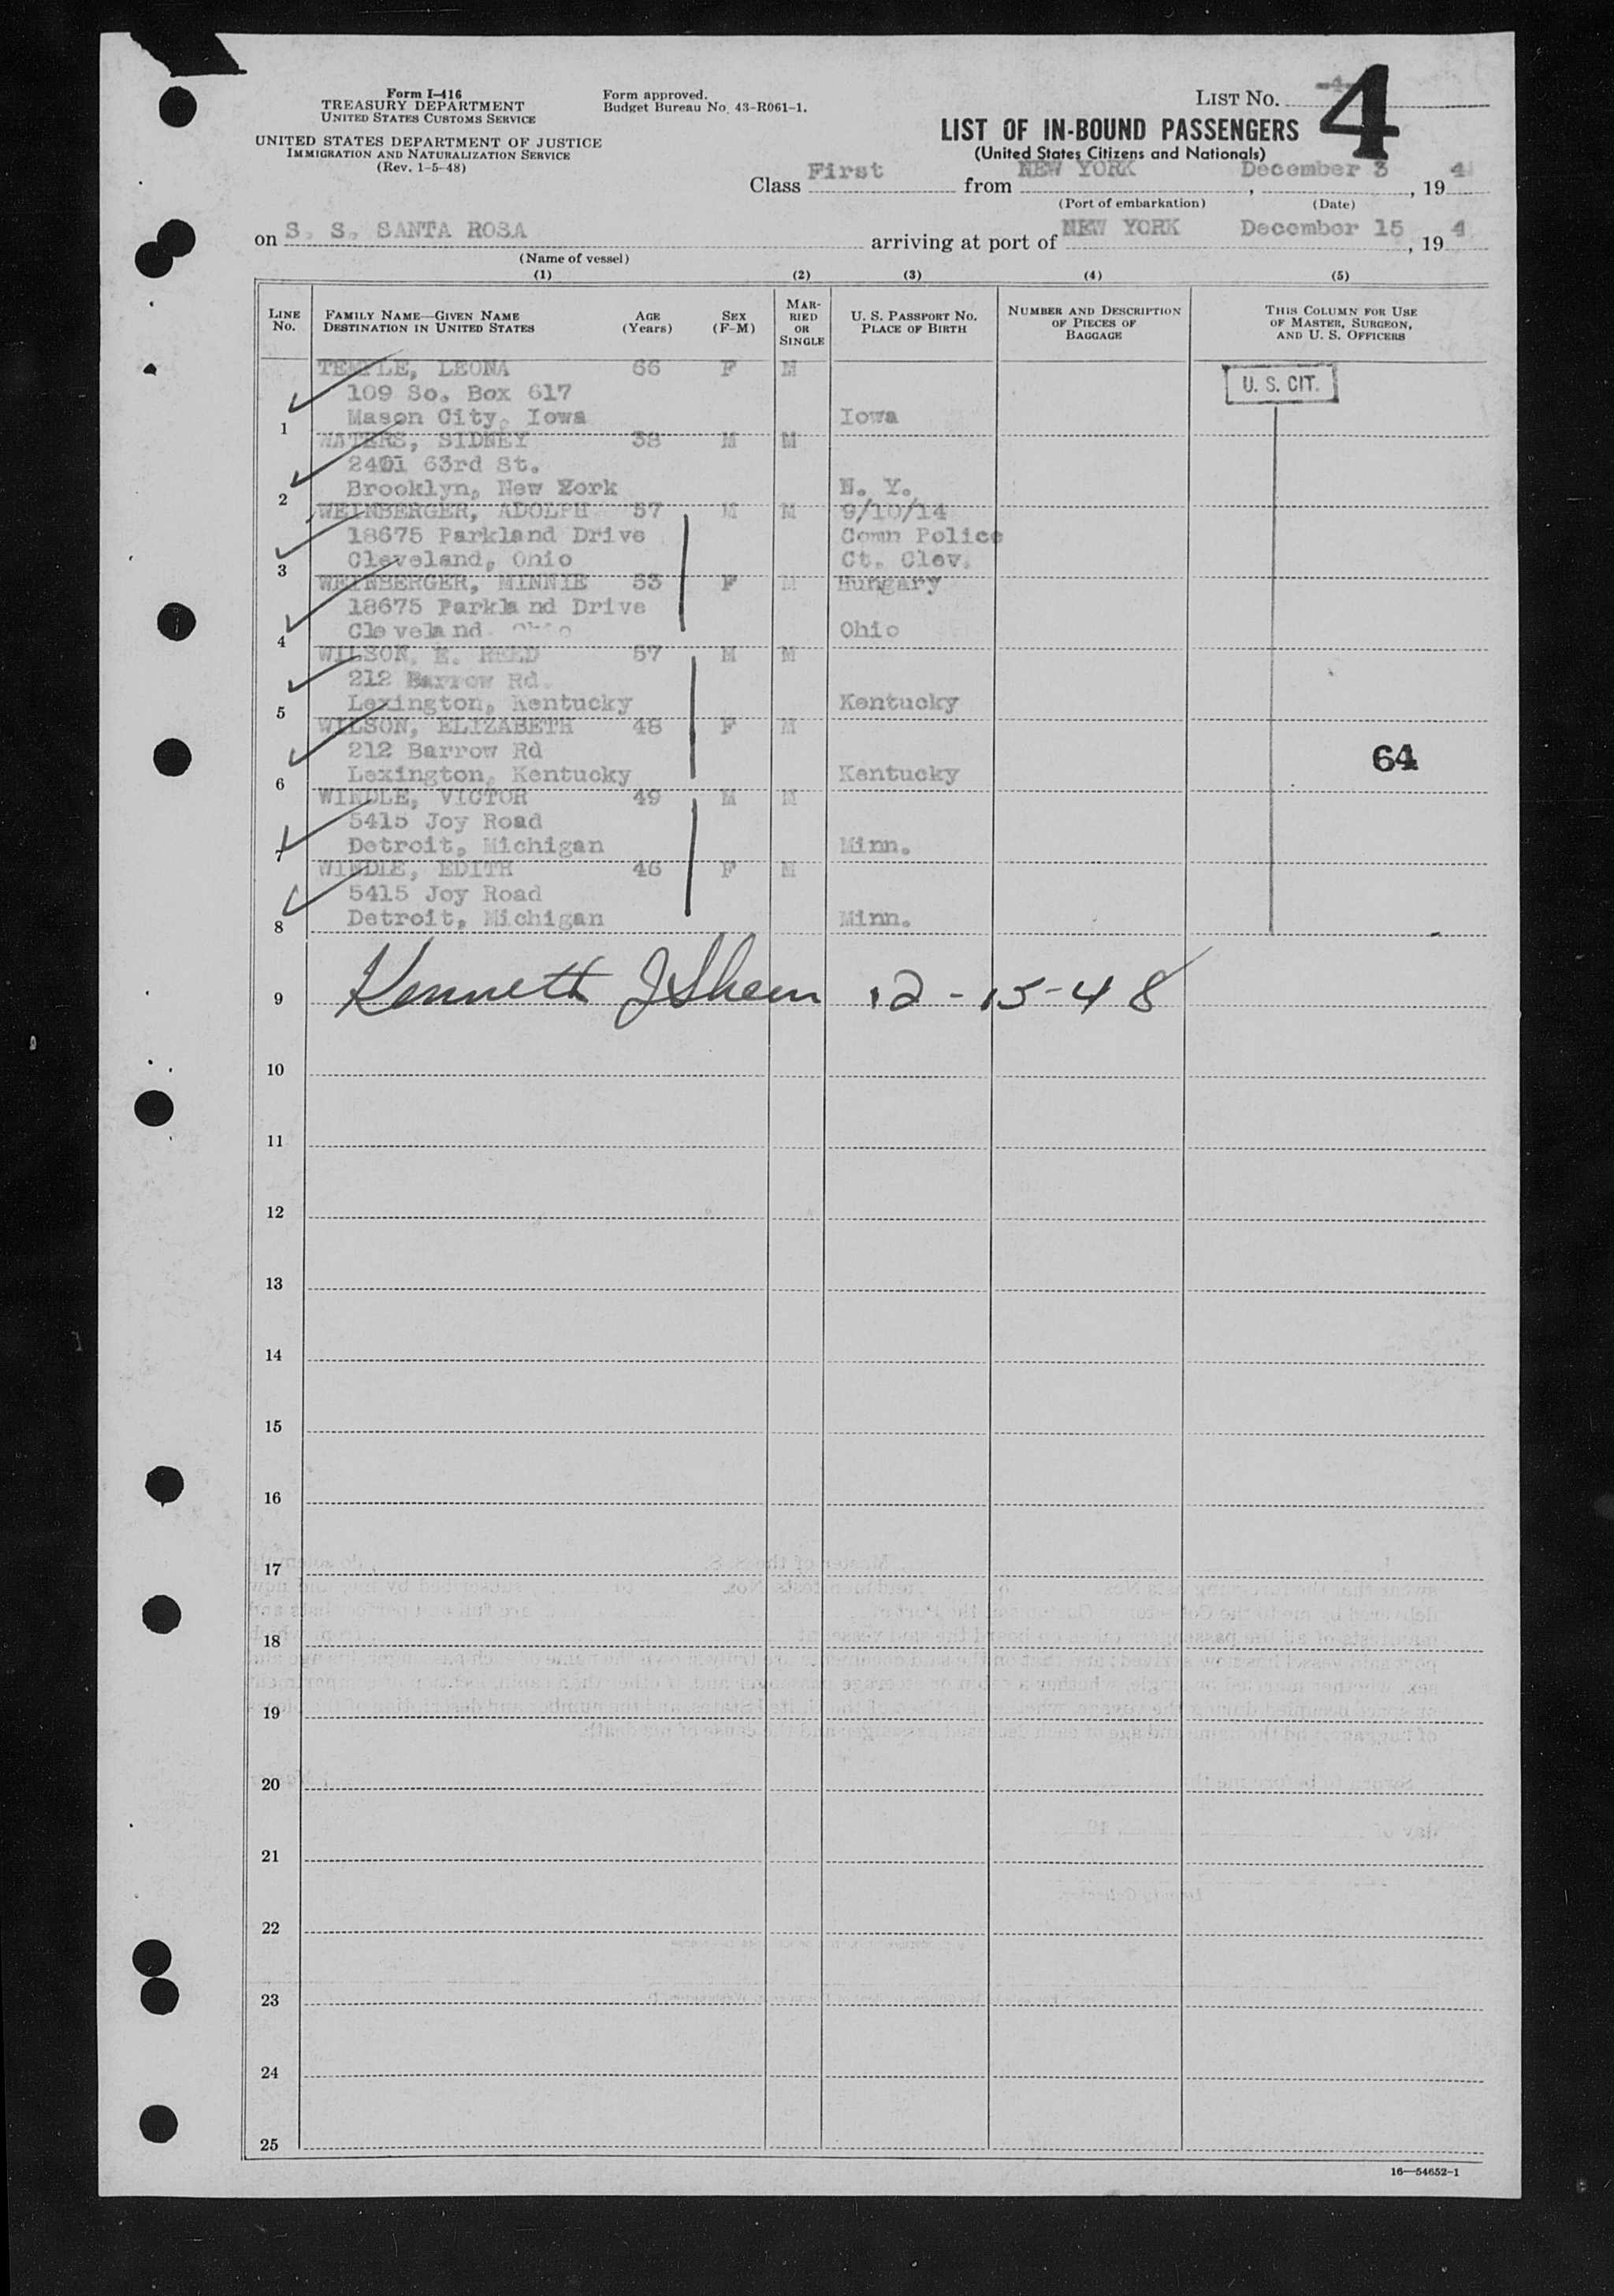 Form I-416
TREASURY DEPARTMENT
UNITED STATES CUSTOMS SERVICE
UNITED STATES DEPARTMENT OF JUSTICE
IMMIGRATION AND NATURALIZATION SERVICE
(Rev. 1-5-48)
Form approved.
Budget Bureau No. 43-R061-1.
LIST NO. 4
4
LIST OF IN-BOUND PASSENGERS
(United States Citizens and Nationals)
Class First from NEW YORK, December 3, 194
(Port of embarkation) (Date)
on S. S. SANTA ROSA arriving at port of NEW YORK December 15, 194
(Name of vessel)
(1) (2) (3) (4) (5)
LINE No.
FAMILY NAME—GIVEN NAME
DESTINATION IN UNITED STATES
AGE (Years)
SEX (F-M)
MARRIED OR SINGLE
U. S. PASSPORT NO.
PLACE OF BIRTH
NUMBER AND DESCRIPTION OF PIECES OF BAGGAGE
THIS COLUMN FOR USE OF MASTER, SURGEON, AND U. S. OFFICERS
TEMPLE, LEONA 66 F M
U. S. CIT.
109 So. Box 617
1 Mason City, Iowa Iowa
WATERS, SIDNEY 38 M M
2401 63rd St.
2 Brooklyn, New York N. Y.
WEINBERGER, ADOLPH 57 M M 9/10/14
18675 Parkland Drive Comn Police
3 Cleveland, Ohio Ct. Clev.
WEINBERGER, MINNIE 53 F M Hungary
18675 Parkland Drive
4 Cleveland Ohio Ohio
WILSON, E. REED 57 M M
212 Barrow Rd.
5 Lexington, Kentucky Kentucky
WILSON, ELIZABETH 48 F M
212 Barrow Rd
64
6 Lexington, Kentucky Kentucky
WINDLE, VICTOR 49 M M
5415 Joy Road
7 Detroit, Michigan Minn.
WINDLE, EDITH 46 F M
5415 Joy Road
8 Detroit, Michigan Minn.
9 Kenneth J 12-15-48
10
11
12
13
14
15
16
17
18
19
20
21
22
23
24
25
16—54652-1